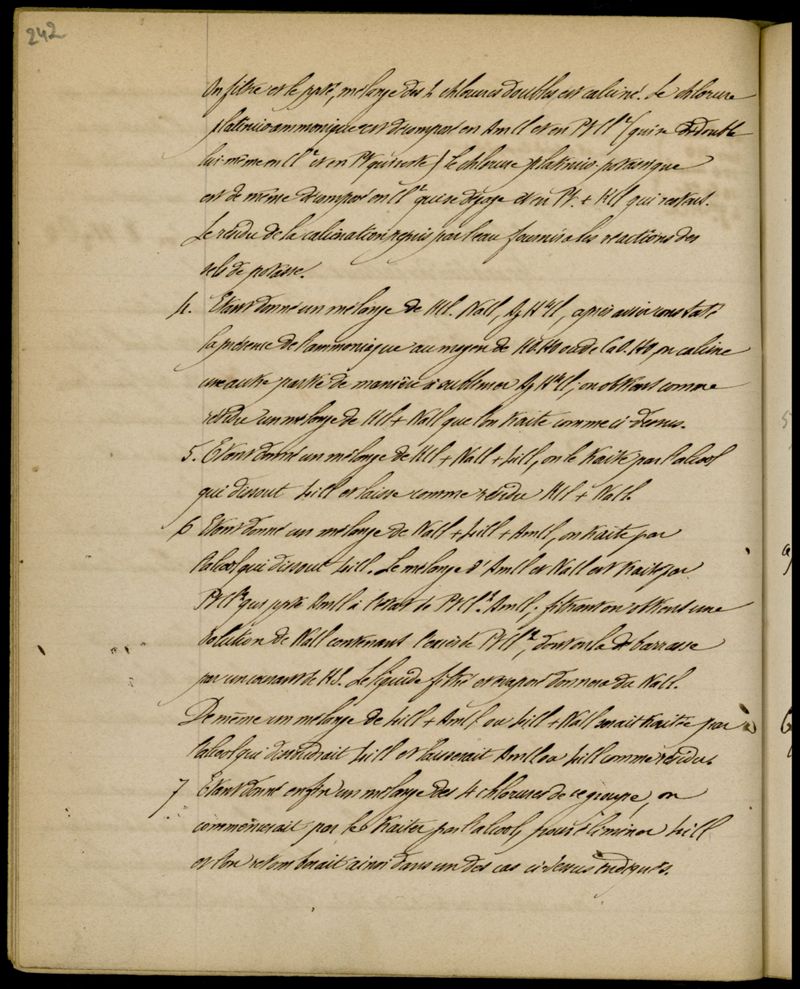 242
On filtre et le ppté, mélange des 2 chlorures doubles est calciné. Le chlorure
platinico-ammonique est décomposé en AmCl et en PtCl² (qui se dédouble
lui-même en Cl² et en Pt qui reste) Le chlorure platinico-potassique
est de même décomposé en Cl² qui se dégage et en Pt + KCl qui restent.
Le résidu de la calcination repris par l'eau fournira les réactions des
sels de potasse.
4. Etant donné un mélange de KCl. NaCl, AzH⁴Cl, après avoir constaté
la présence de l'ammoniaque au moyen de KO.HO ou de CaO.HO on calcine
une autre partie de manière à sublimer AzH⁴Cl, on obtient comme
résidu un mélange de KCl + NaCl que l'on traite comme ci-dessus.
5. Etant donné un mélange de KCl + NaCl + LiCl, on le traite par l'alcool
qui dissout LiCl et laisse comme résidu KCl + NaCl.
6 Etant donné un mélange de NaCl + LiCl + AmCl, on traite par
l'alcool qui dissout LiCl. Le mélange d'AmCl et NaCl est traité par
PtCl² qui ppte AmCl à l'état de PtCl².AmCl; filtrant on obtient une
solution de NaCl contenant l'excès de PtCl², dont on la débarrasse
par un courant de HS. Le liquide filtré et évaporé donnera du NaCl.
De même un mélange de LiCl + AmCl ou LiCl + NaCl serait traité par
l'alcool qui dissoudrait LiCl et laisserait AmCl ou LiCl comme résidu.
7 Etant donné enfin un mélange des 4 chlorures de ce groupe, on
commencerait par le traiter par l'alcool, pour éliminer LiCl
et l'on retomberait ainsi dans un des cas ci-dessus indiqués.